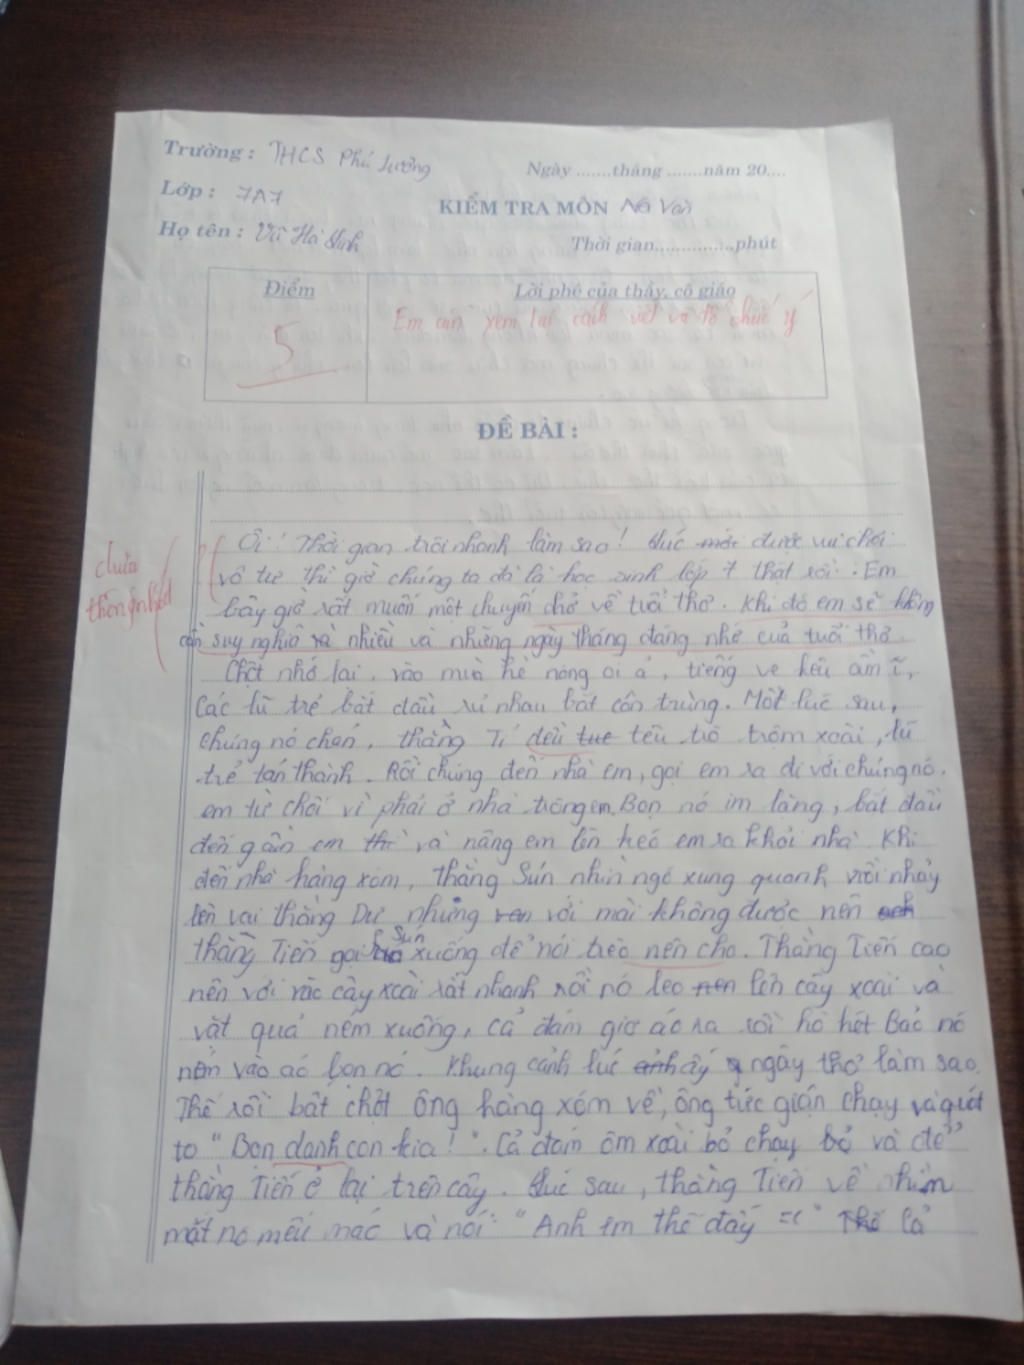 Trường : THCS Phú Lương
Ngày .......tháng .......năm 20....
Lớp : 7A7
KIỂM TRA MÔN Ng Văn
Họ tên : Vũ Hà Linh
Thời gian...............phút
Điểm
Lời phê của thầy, cô giáo
5
Em cần xem lại cách viết và tổ chức ý
ĐỀ BÀI :
chưa
thống nhất
Ôi! Thời gian trôi nhanh làm sao! Lúc được vui chơi
vô tư thì giờ chúng ta đã là học sinh lớp 7 thật rồi. Em
bây giờ rất muốn một chuyến chở về tuổi thơ. Khi đó em sẽ không
cần suy nghĩ ra nhiều và những ngày tháng đáng nhớ của tuổi thơ.
Chợt nhớ lại, vào mùa hè nóng oi ả, tiếng ve kêu ầm ĩ,
Các lũ trẻ bắt đầu rủ nhau bắt côn trùng. Một lúc sau,
chúng nó chán, thằng Tí đều têu trò trộm xoài, lũ
trẻ tán thành. Rồi chúng đến nhà em, gọi em ra đi với chúng nó.
em từ chối vì phải ở nhà trông em. Bọn nó im lặng, bắt đầu
đến gần em và nâng em lên kéo em ra khỏi nhà. Khi
đến nhà hàng xóm, thằng Sún nhìn ngó xung quanh rồi nhảy
lên vai thằng Dư nhưng với mãi không được nên
thằng Tiến gọi Sún xuống để nói trèo nên cho. Thằng Tiến cao
nên với cây xoài rất nhanh rồi nó leo lên cây xoài và
vặt quả ném xuống, cả đám giơ áo ra rồi hò hét Bảo nó
ném vào áo bọn nó. Khung cảnh lúc ấy ngây thơ làm sao.
Thế rồi bất chợt ông hàng xóm về, ông tức giận chạy và quát
to "Bọn danh con kia!". Cả đám ôm xoài bỏ chạy bỏ và để
thằng Tiến ở lại trên cây. Lúc sau, thằng Tiến về nhìn
mặt nó mếu máo và nói: "Anh em thế đấy =(" Thế là